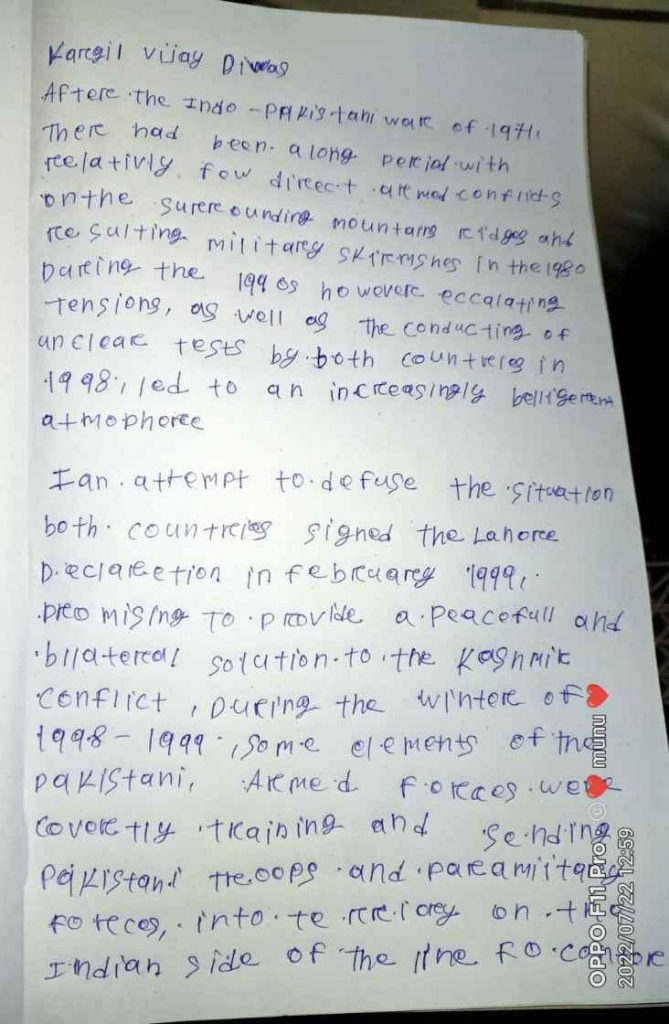 Karegil Vijay Diwas
Aftere the Indo - Pakistani ware of 1971.
There had been a long perciod with
reelativly few direect aremed conflicts
on the surerounding mountains ridges and
resulting militarey skiremshes in the 1980
Dureing the 1990s howevere eccalating
tensions, as well as the conducting of
unclear tests by both countreies in
1998, led to an increeasingly belligerent
atmopheree
I an attempt to defuse the situation
both countreies signed the Lahoree
Declareetion in februarey 1999,
preomising to provide a peacefull and
bilatereal solution to the Kashmir
conflict, Dureing the wintere of
1998 - 1999, some elements of the
pakistani, Aremed foreces were
coverertly training and sending
Pakistani treoops and paramilitary
foreces, into terreriorey on the
Indian side of the line fo
OPPO F11 Pro © ❤ munu ❤
2022/07/22 12:59